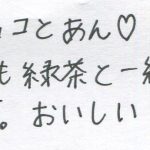 ョコとあん♡
も緑茶と一緒
。おいしい